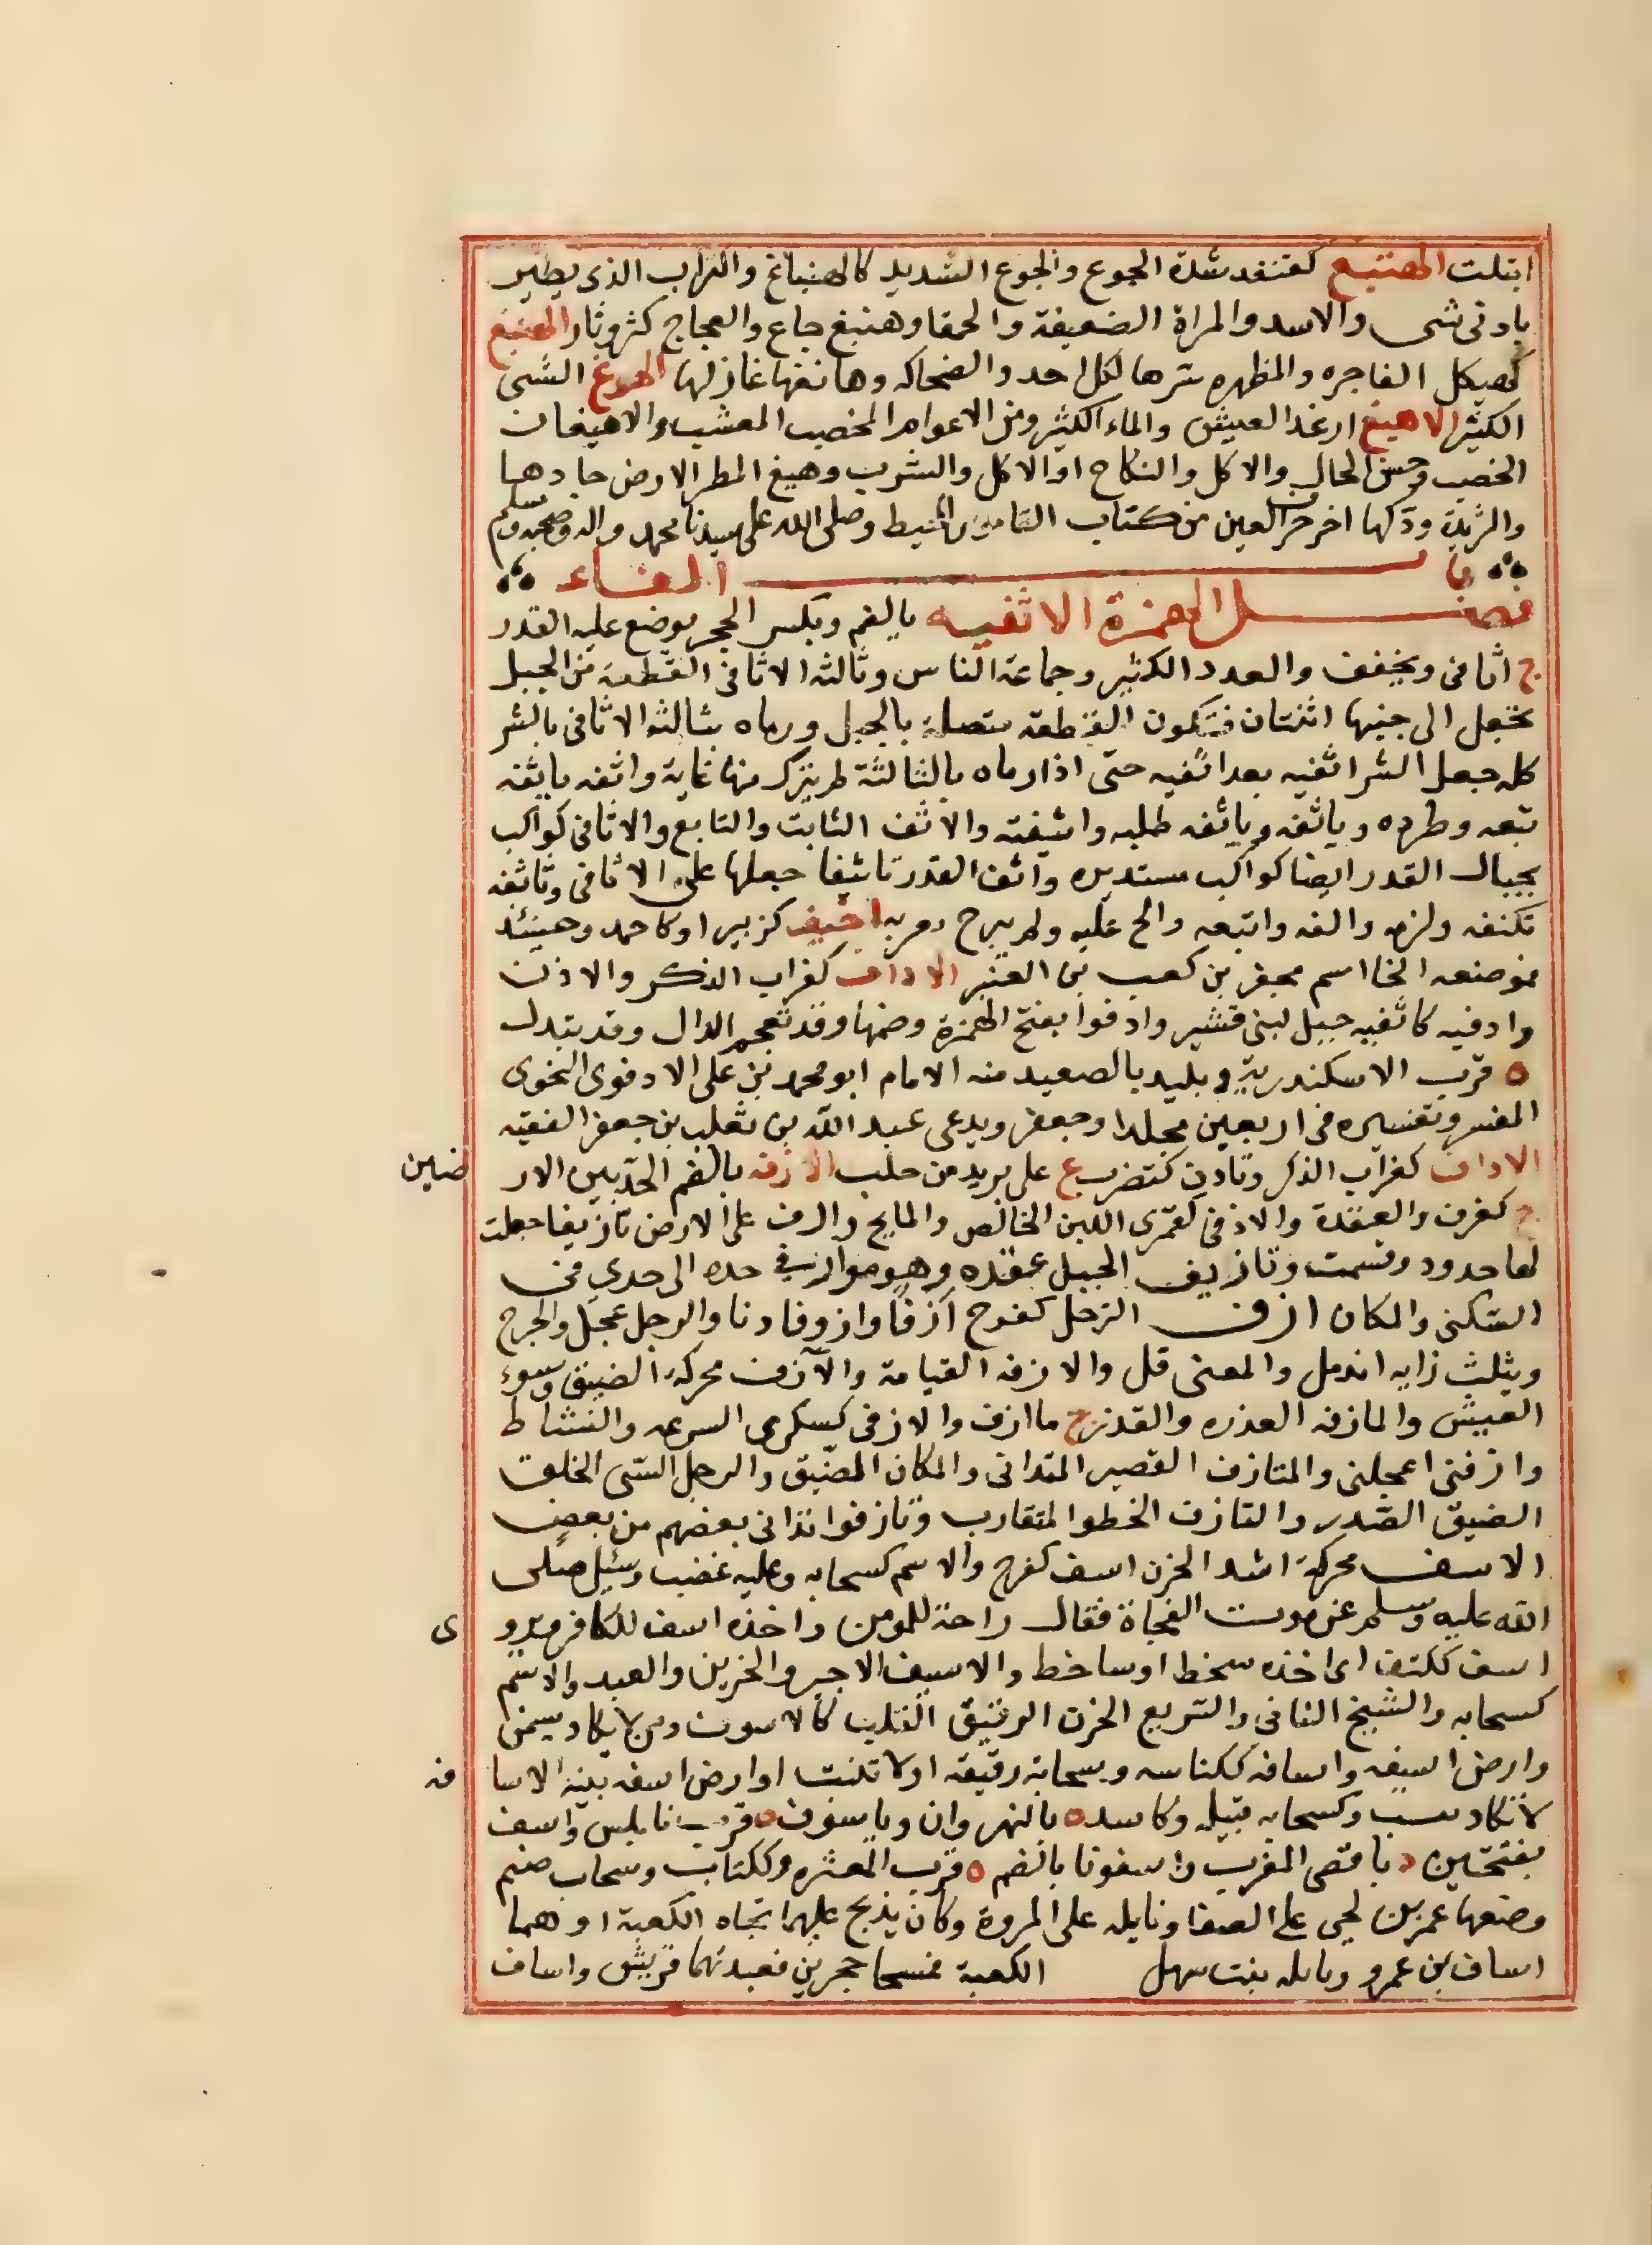 ابتلت الهنبغ كقنفد شدة الجوع والجوع الشديد كالهنباغ والتراب الذى يطير
بادنى شى والاسد والمراة الضعيفة والحمقا وهنبغ جاع والعجاج كثر وثار الهينغ
كهيكل الفاجره والمظهره سترها لكل احد والضحاكه وهانغها غازلها الهوغ الشى
الكثير الاهيغ ارغد العيش والماء الكثير ومن الاعوام المخصب المعشب والاهيغان
الخصب وحسن الحال والاكل والنكاح او الاكل والشرب وهيغ المطر الارض جادها
والثريدة ودكها اخر حرف العين من كتاب القاموس المحيط وصلى الله على سيدنا محمد واله وصحبه وسلم
باب الفاء
فصل الهمزة الاثفيه بالضم وبكسر الحجر يوضع عليه القدر
ج اثافى ويخفف والعدد الكثير وجماعة الناس وثالثه الاثافى القطعة من الجبل
يجعل الى جنبها اثنتان فتكون القطعه متصلة بالجبل ورماه بثالثه الاثافى بالشر
كله جعل الشر اثفيه بعد اثفيه حتى اذا رماه بالثالثة لم يترك منها غاية واثفه ياثفه
تبعه وطرده وياثفه وياثفه طلبه واثيفته والاثف الثابت والتابع والاثافى كواكب
بحيال القدر ايضا كواكب مستديره واثف القدر تاثيفا جعلها على الاثافى وتاثفه
تكنفه ولزمه والفه واتبعه والح عليه ولم يبرح يغريه اخيف كزبير او كاحمد وحينئذ
فموضعه الخا اسم مجفر بن كعب بن العنبر الاداف كغراب الذكر والاذن
وادفيه كاثفيه جبل لبنى قشير وادفوا بفتح الهمزة وضمها وقد تعجم الدال وقد بتدل
ه قرب الاسكندرية وبليد بالصعيد منه الامام ابو محمد بن على الادفوى النحوى
المفسر وتفسيره فى اربعين مجلدا وجعفر ويدعى عبد الله بن ثعلب بن جعفر الفقيه
الاداف كغراب الذكر وتاذف كتضرب ع على بريد من حلب الارفه بالضم الحد بين الار ضين
ج كغرف والعقدة والارفى كقمرى اللبن الخالص والمايح وارف على الارض تاريفا جعلت
لها حدود وقسمت وتاريف الحبل عقده وهو موارفى حده الى حدى فى
السكنى والمكان ازف الترحل كفرح ازفا وازوفا دنا والرجل عجل والجرح
ويثلث زايه اندمل والمعنى قل والازفه القيامة والآزف محركة الضيق وسوء
العيش والمازفه العذره والقذر ج مازف والازفى كسكرى السرعه والنشاط
وازفنى اعجلنى والمتازف القصير المتدانى والمكان الضيق والرجل السى الخلق
الضيق الصدر والتازف الخطو المتقارب وتازفوا تدانى بعضهم من بعض
الاسف محركة اشد الحزن اسف كفرح والاسم كسحابه وعليه غضب وسئل صلى
الله عليه وسلم عن موت الفجاة فقال راحة للمومن واخذه اسف للكافر ويرو ى
اسف ككتف اى اخذه سخط او ساخط والاسيف الاجير والحزين والعبد والاسم
كسحابه والشيخ الفانى والسريع الحزن الرقيق القلب كالاسوف ومن لا يكاد يسمن
وارض اسيفه واسافه ككناسه وسحابة رقيقه او لا تنبت او ارض اسفه بينه الاسا فه
لا تكاد تنبت وكسحابه قبيله وكاسده بالنهروان وياسوف ه قرب نابلس واسف
بفتحتين د باقصى المغرب واسفونا بالضم ه قرب المعره وككتاب وسحاب صنم
وضعها عمر بن لحى على الصفا ونايله على المروة وكان يذبح عليهما تجاه الكعبة او هما
اساف بن عمرو ونايله بنت سهل الكعبة فمسخا حجرين فعبدتهما قريش واساف